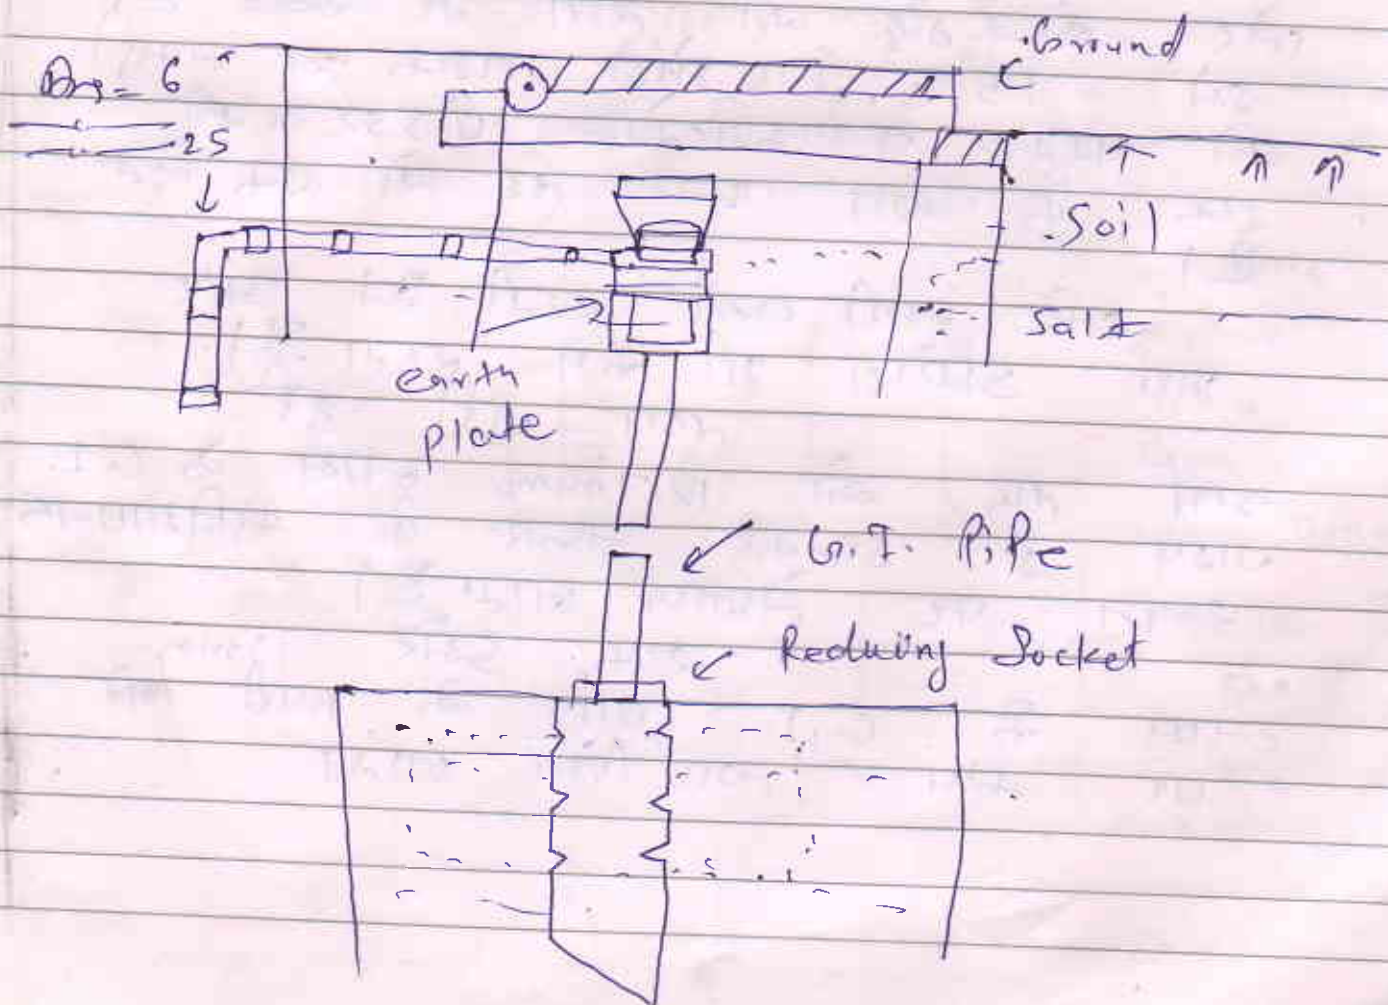 Ans- 6
25
Ground
Soil
Salt
earth
plate
G.I. PiPe
Reduiing Socket